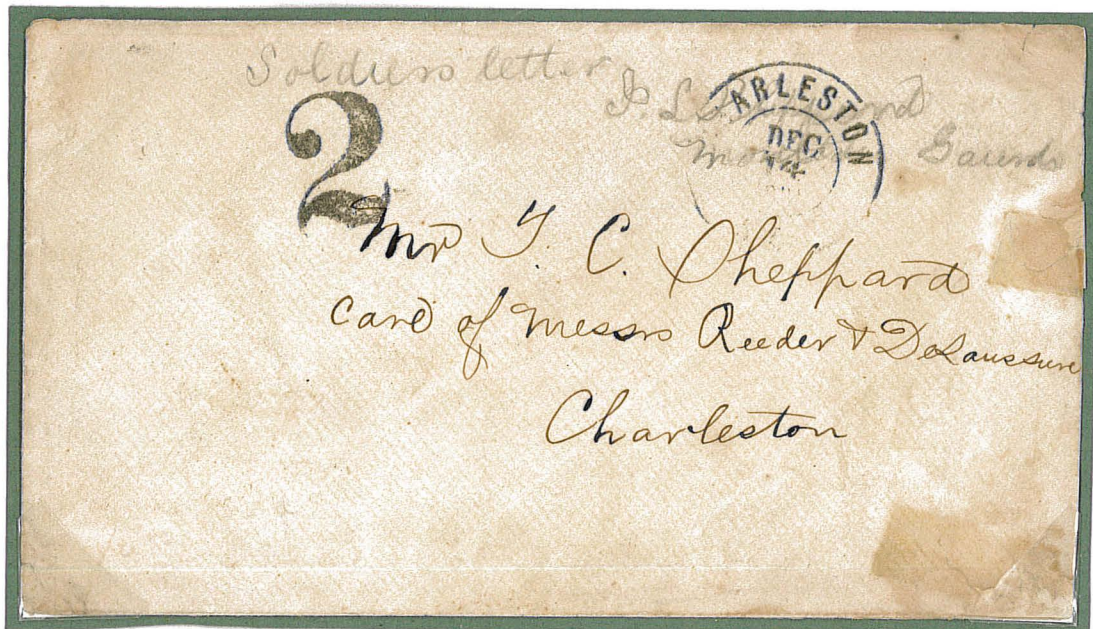 Soldiers letter
2
ARLESTON
DEC
14
Gaurds
Mr T. C. Sheppard
Care of Messrs Reeder & DeSaussure
Charleston